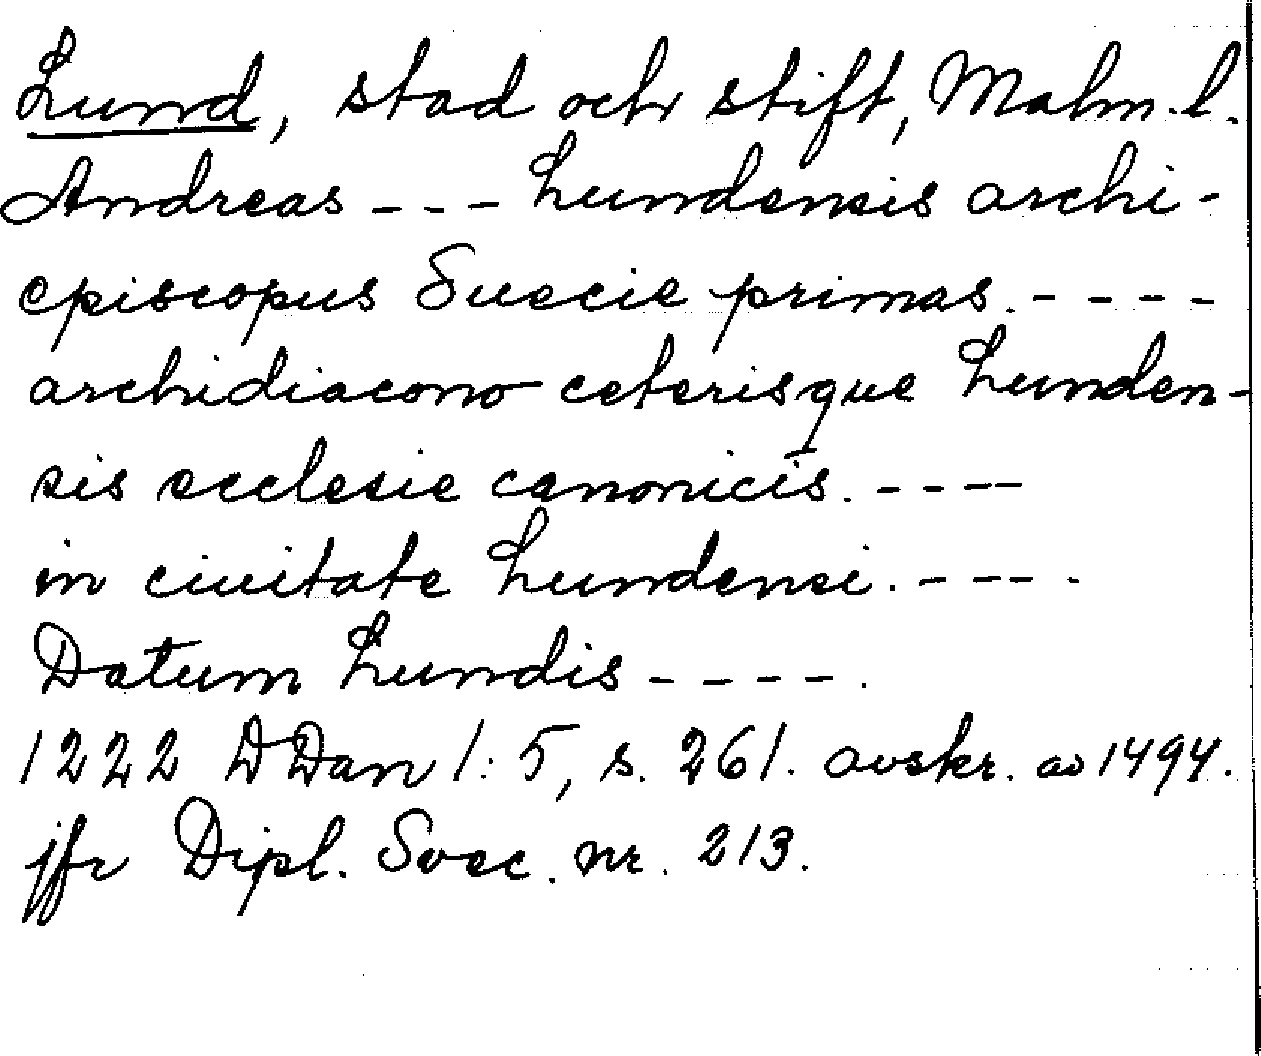 Lund, stad och stift, Malm.l.
Andreas --- Lundensis archi-
episcopus Suecie primas. ----
archidiacono ceterisque Lunden-
sis ecclesie canonicis. ----
in ciuitate Lundensi. ----.
Datum Lundis ----.
1222 DDan 1:5, s. 261. avskr. av 1494.
jfr Dipl. Svec. nr. 213.